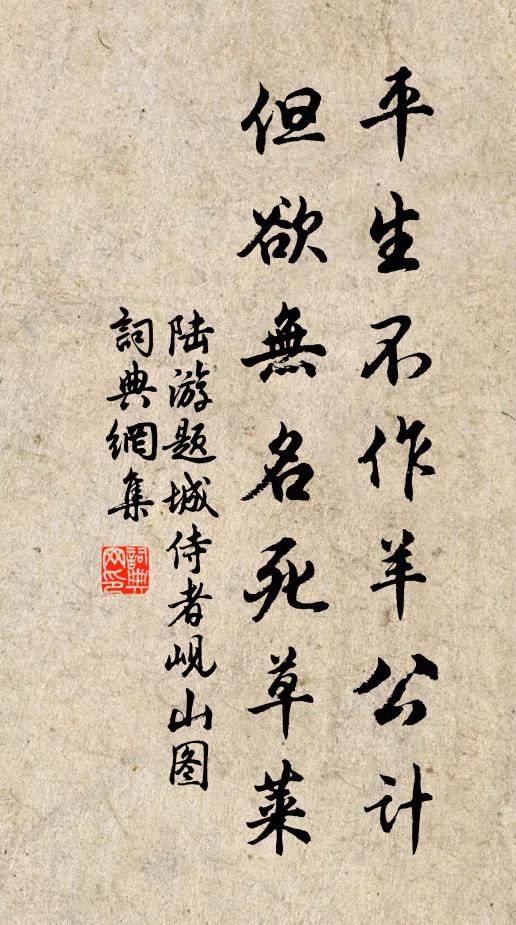 平生不作羊公计
但欲無名死草莱
陆游题城侍者岘山图
詞典網集
詞典
网印